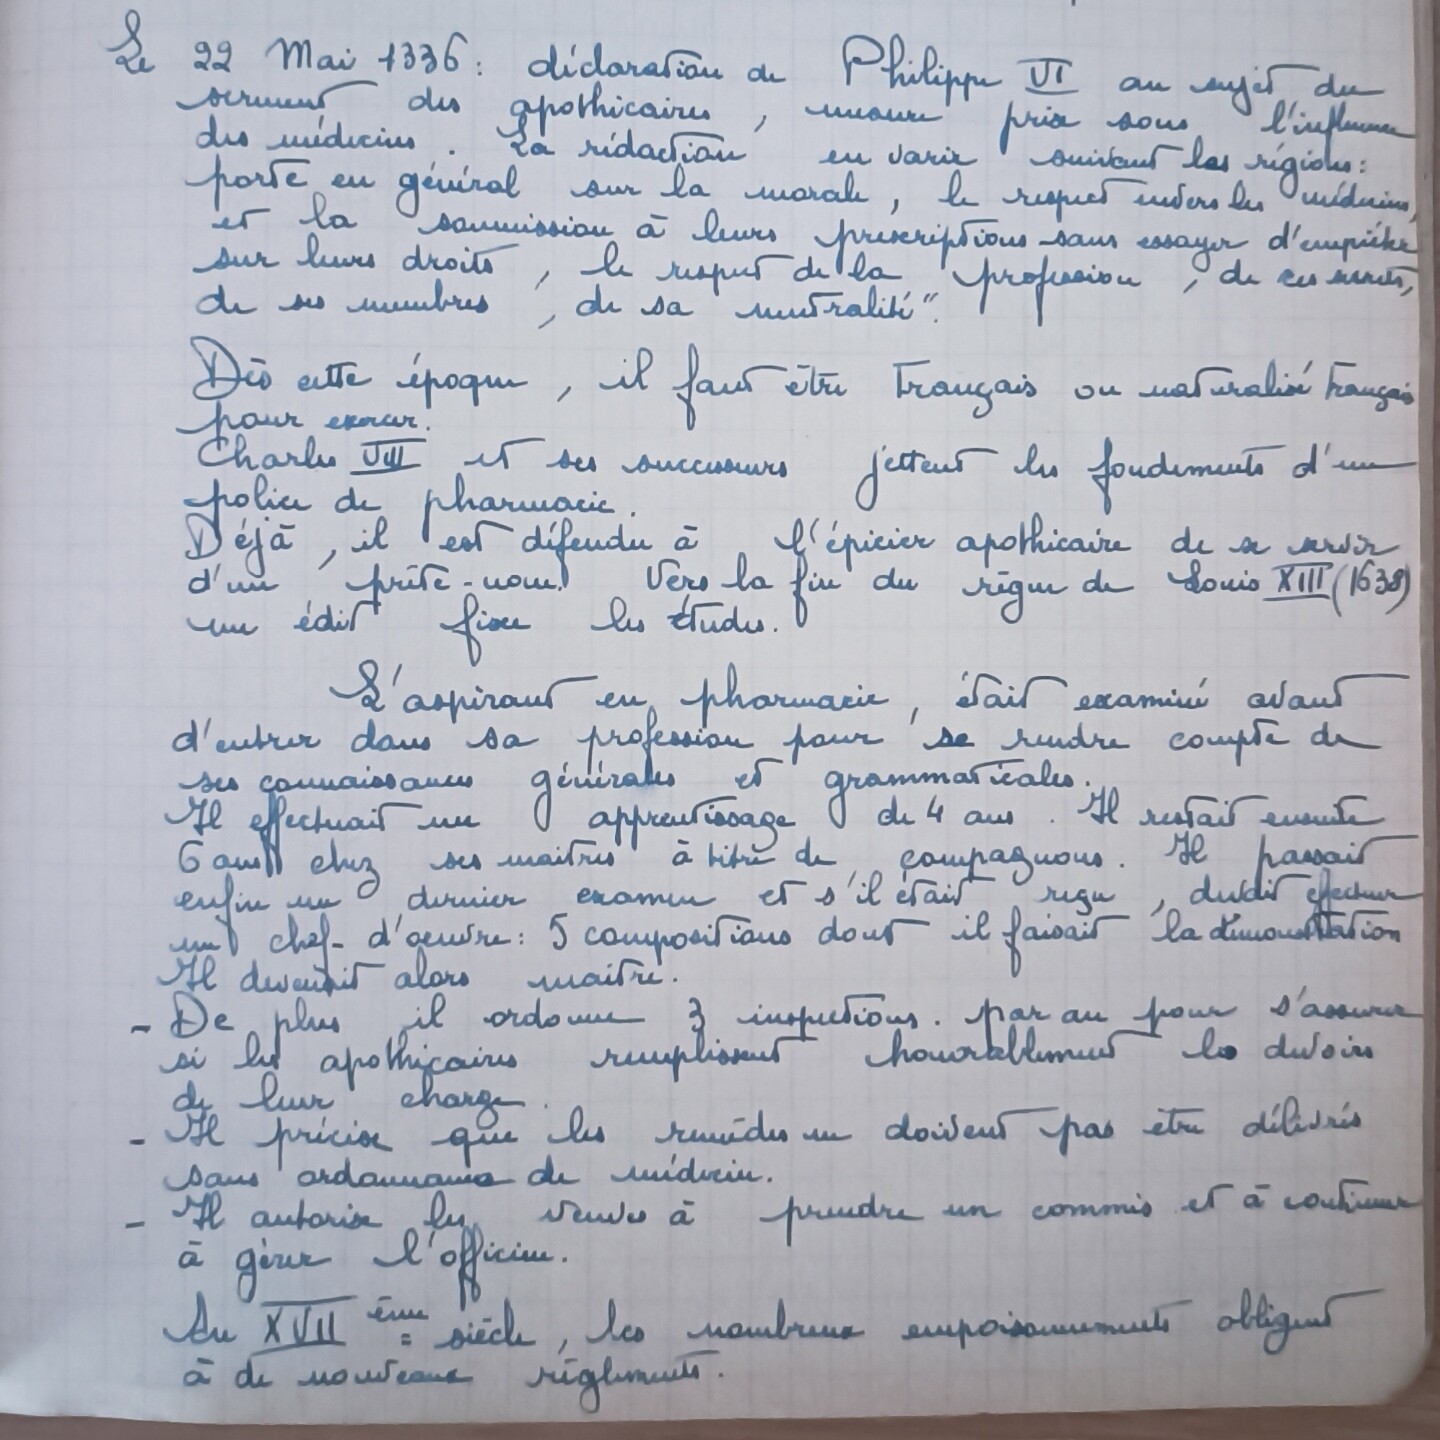 Le 22 Mai 1336 : déclaration de Philippe VI au sujet du
serment des apothicaires, mesure prise sous l'influence
des médecins. La rédaction en varie suivant les régions :
porte en général sur la morale, le respect envers les médecins,
et la soumission à leurs prescriptions sans essayer d'empiéter
sur leurs droits, le respect de la profession, de ces secrets,
de ses membres, de sa neutralité".
Dès cette époque, il faut être Français ou naturalisé Français
pour exercer.
Charles VIII et ses successeurs jettent les fondements d'une
police de pharmacie.
Déjà, il est défendu à l'épicier apothicaire de se servir
d'un prête-nom. Vers la fin du règne de Louis XIII (1638)
un édit fixe les études.
L'aspirant en pharmacie, était examiné avant
d'entrer dans sa profession pour se rendre compte de
ses connaissances générales et grammaticales.
Il effectuait un apprentissage de 4 ans. Il restait ensuite
6 ans chez ses maîtres à titre de compagnons. Il passait
enfin un dernier examen et s'il était reçu, devait effectuer
un chef-d'oeuvre : 5 compositions dont il faisait la démonstration
Il devenait alors maître.
- De plus il ordonne 3 inspections par an pour s'assurer
si les apothicaires remplissent honorablement les devoirs
de leur charge.
- Il précise que les remèdes ne doivent pas être délivrés
sans ordonnance de médecin.
- Il autorise les veuves à prendre un commis et à continuer
à gérer l'officine.
Au XVII ème siècle, les nombreux empoisonnements obligent
à de nouveaux règlements.